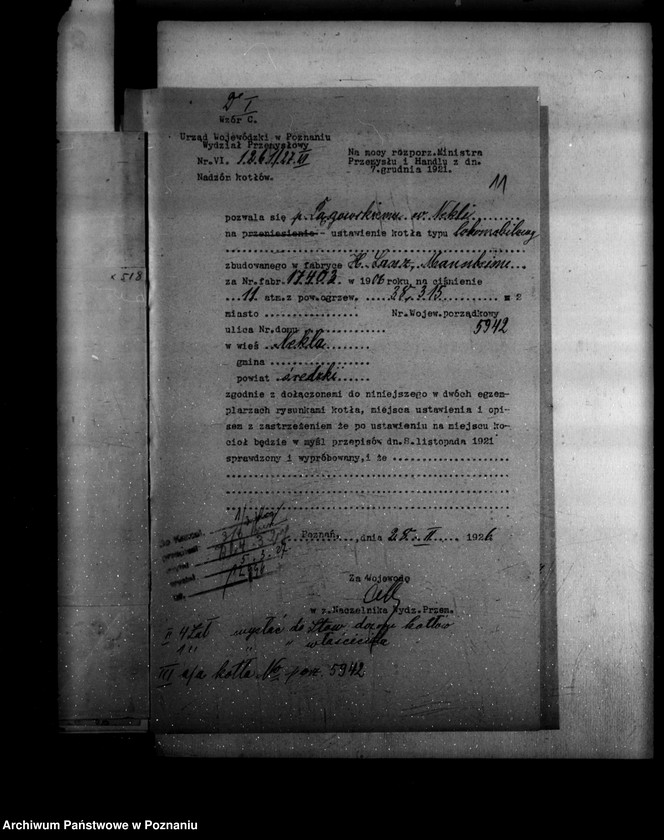 I
Wzór C.
Urząd Wojewódzki w Poznaniu
Wydział Przemysłowy
Nr.VI.
Nadzór kotłów.
Na mocy rozporz.Ministra
Przemysłu i Handlu z dn.
7.grudnia 1921.
11
pozwala się p. w Nekli
na przeniesienie - ustawienie kotła typu
zbudowanego w fabryce H. Lanz, Mannheim
za Nr.fabr. 17402 w 1906 roku, na ciśnienie
11 atm.z pow.ogrzew. m 2
miasto
Nr.Wojew.porządkowy
5942
ulica Nr.domu
w wieś Nekla
gmina
powiat średzki
zgodnie z dołączonemi do niniejszego w dwóch egzem-
plarzach rysunkami kotła, miejsca ustawienia i opi-
sem z zastrzeżeniem że po ustawieniu na miejscu ko-
cioł będzie w myśl przepisów dn.8.listopada 1921
sprawdzony i wypróbowany,i że
Poznań, dnia II 192
Za Wojewodę
w z.Naczelnika Wydz.Przem.
II wysłać do Stow. dozoru kotłów
" właściciela
III a/a kotła No porz. 5942
x 518
Archiwum Państwowe w Poznaniu